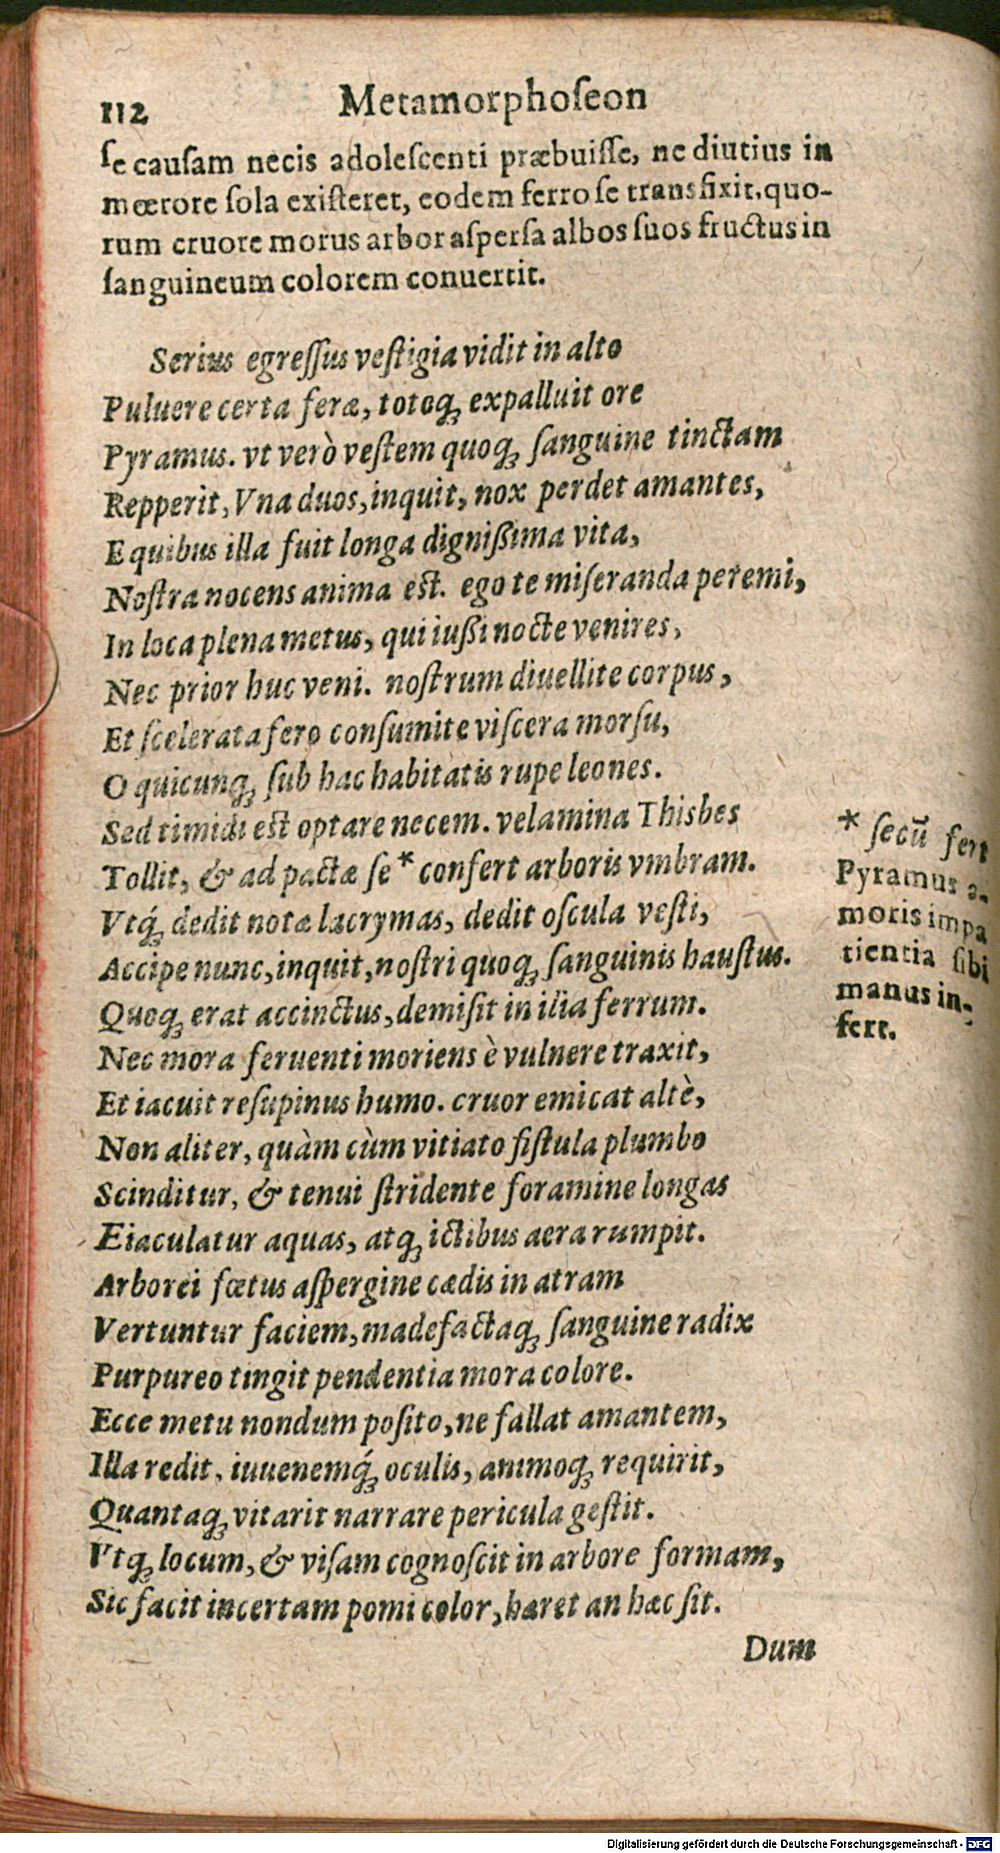 112 Metamorphoſeon
ſe cauſam necis adoleſcenti præbuiſſe, ne diutius in
mœrore ſola exiſteret, eodem ferro ſe transfixit. quo-
rum cruore morus arbor aſperſa albos ſuos fructus in
ſanguineum colorem conuertit.
Serius egreſſus veſtigia vidit in alto
Puluere certa feræ, totoq́; expalluit ore
Pyramus. vt verò veſtem quoq; ſanguine tinctam
Repperit, Vna duos, inquit, nox perdet amantes,
E quibus illa fuit longa digniſsima vita,
Noſtra nocens anima eſt. ego te miſeranda peremi,
In loca plena metus, qui iuſsi nocte venires,
Nec prior huc veni. noſtrum diuellite corpus,
Et ſcelerata fero conſumite viſcera morſu,
O quicunq; ſub hac habitatis rupe leones.
Sed timidi eſt optare necem. velamina Thisbes
Tollit, & ad pactæ ſe * confert arboris vmbram.
Vtq́; dedit notæ lacrymas, dedit oſcula veſti,
Accipe nunc, inquit, noſtri quoq; ſanguinis hauſtus.
Quoq; erat accinctus, demiſit in ilia ferrum.
Nec mora feruenti moriens è vulnere traxit,
Et iacuit reſupinus humo. cruor emicat altè,
Non aliter, quàm cùm vitiato fiſtula plumbo
Scinditur, & tenui ſtridente foramine longas
Eiaculatur aquas, atq; ictibus aera rumpit.
Arborei fœtus aſpergine cædis in atram
Vertuntur faciem, madefactaq; ſanguine radix
Purpureo tingit pendentia mora colore.
Ecce metu nondum poſito, ne fallat amantem,
Illa redit, iuuenemq́; oculis, animoq; requirit,
Quantaq; vitarit narrare pericula geſtit.
Vtq; locum, & viſam cognoſcit in arbore formam,
Sic facit incertam pomi color, hæret an hæc ſit.
Dum
* ſecū fert
Pyramus a-
moris impa
tientia ſibi
manus in-
fert.
Digitalisierung gefördert durch die Deutsche Forschungsgemeinschaft - DFG